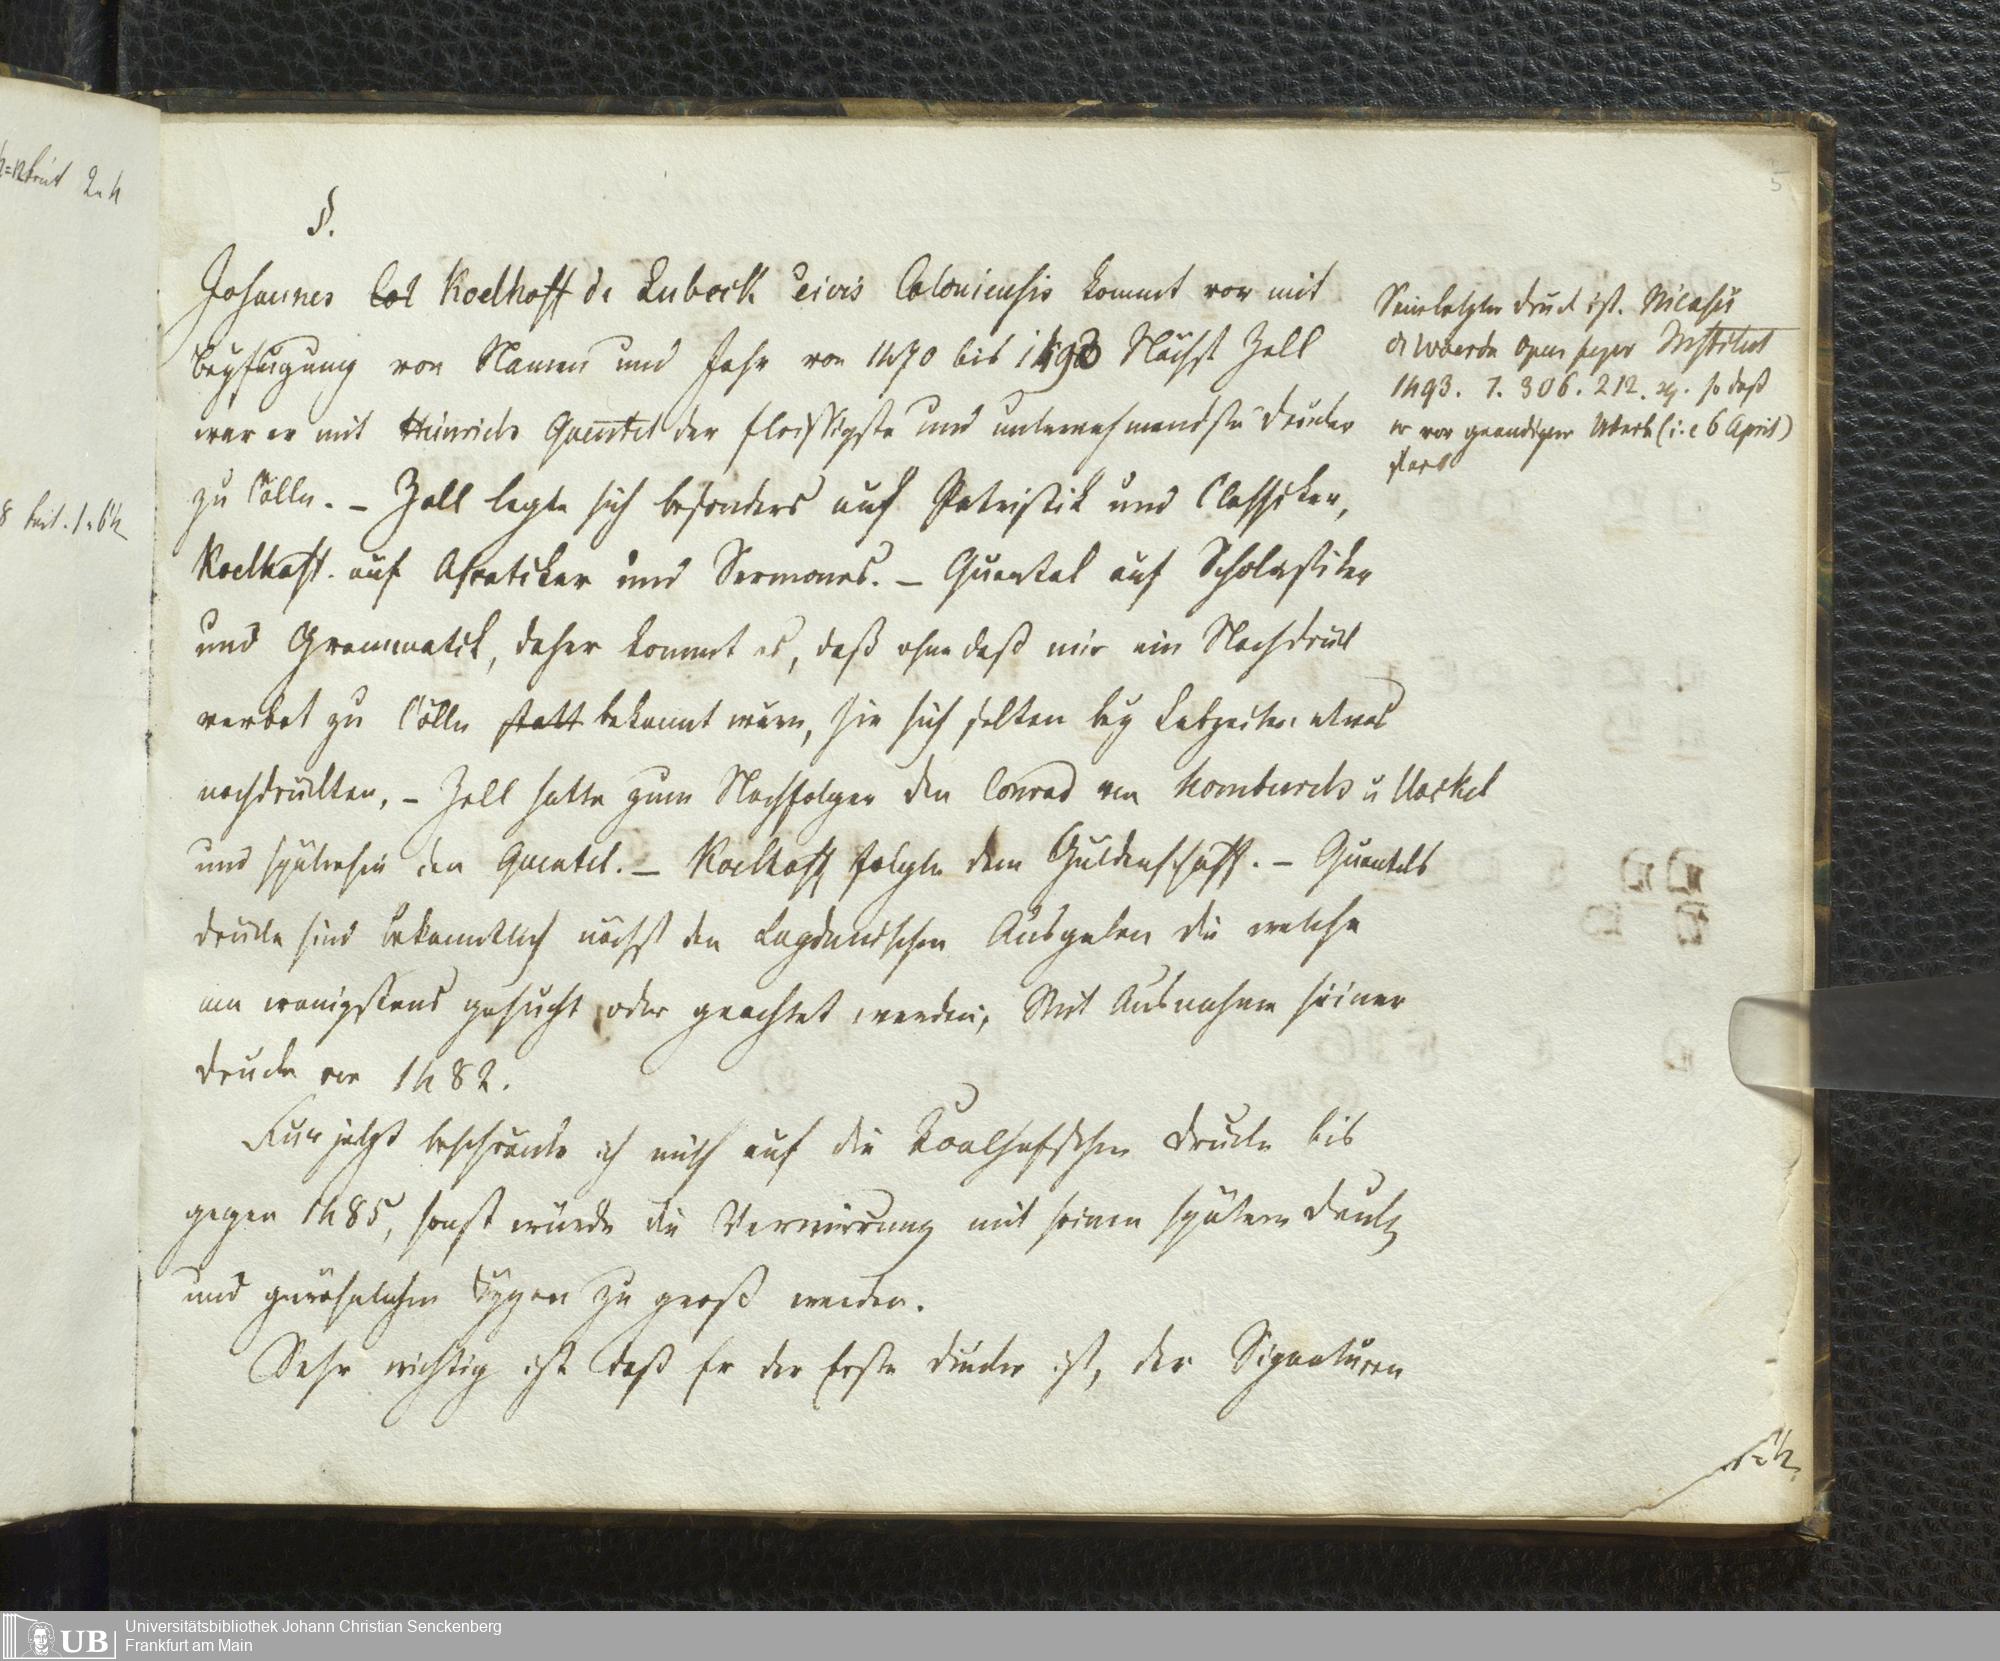 5
§.
Johannes Col Koelhoff de Lubeck Civis Coloniensis kommt vor mit
Beyfugung von Namen und Jahr von 1470 bis 1493 Nächst Zell
war er mit Heinrich Quentel der fleissigste und unternehmendste Drucker
zu Cölln. – Zell legte sich besonders auf Patristik und Classiker,
Koelhoff. auf Ascetiker und Sermones. – Quentel auf Scholastiker
und Grammatik, daher kommt es, daß ohne daß mir ein Nachdruck
verbot zu Cölln statt bekannt wäre, sie sich selten bey Lebzeiten etwas
nachdruckten. – Zell hatte zum Nachfolger den Conrad von Homburch u
und späterhin den Quentel. – Koelhoff folgte dem Guldenschaff. – Quentels
Drucke sind bekanntlich nächst den Lugdunischen Ausgaben die welche
am wenigstens gesucht oder geachtet werden, Mit Ausnahme seiner
Drucke vor 1482.
Fur jetzt beschränke ich mich auf die Koelhofschen Drucke bis
gegen 1485, sonst würde die Verwirrung mit seinen spätern
und gewöhnlichen Typen zu groß werden.
Sehr wichtig ist daß Er der Erste Drucker ist, der Signaturen
Sein letzter Druck ist. Nicasii
de Woerda Opus super Institut
1493. 1. 306. 212. so daß
er vor geendigtem Werk (i. e 6 April)
starb
Universitätsbibliothek Johann Christian Senckenberg
Frankfurt am Main
UB